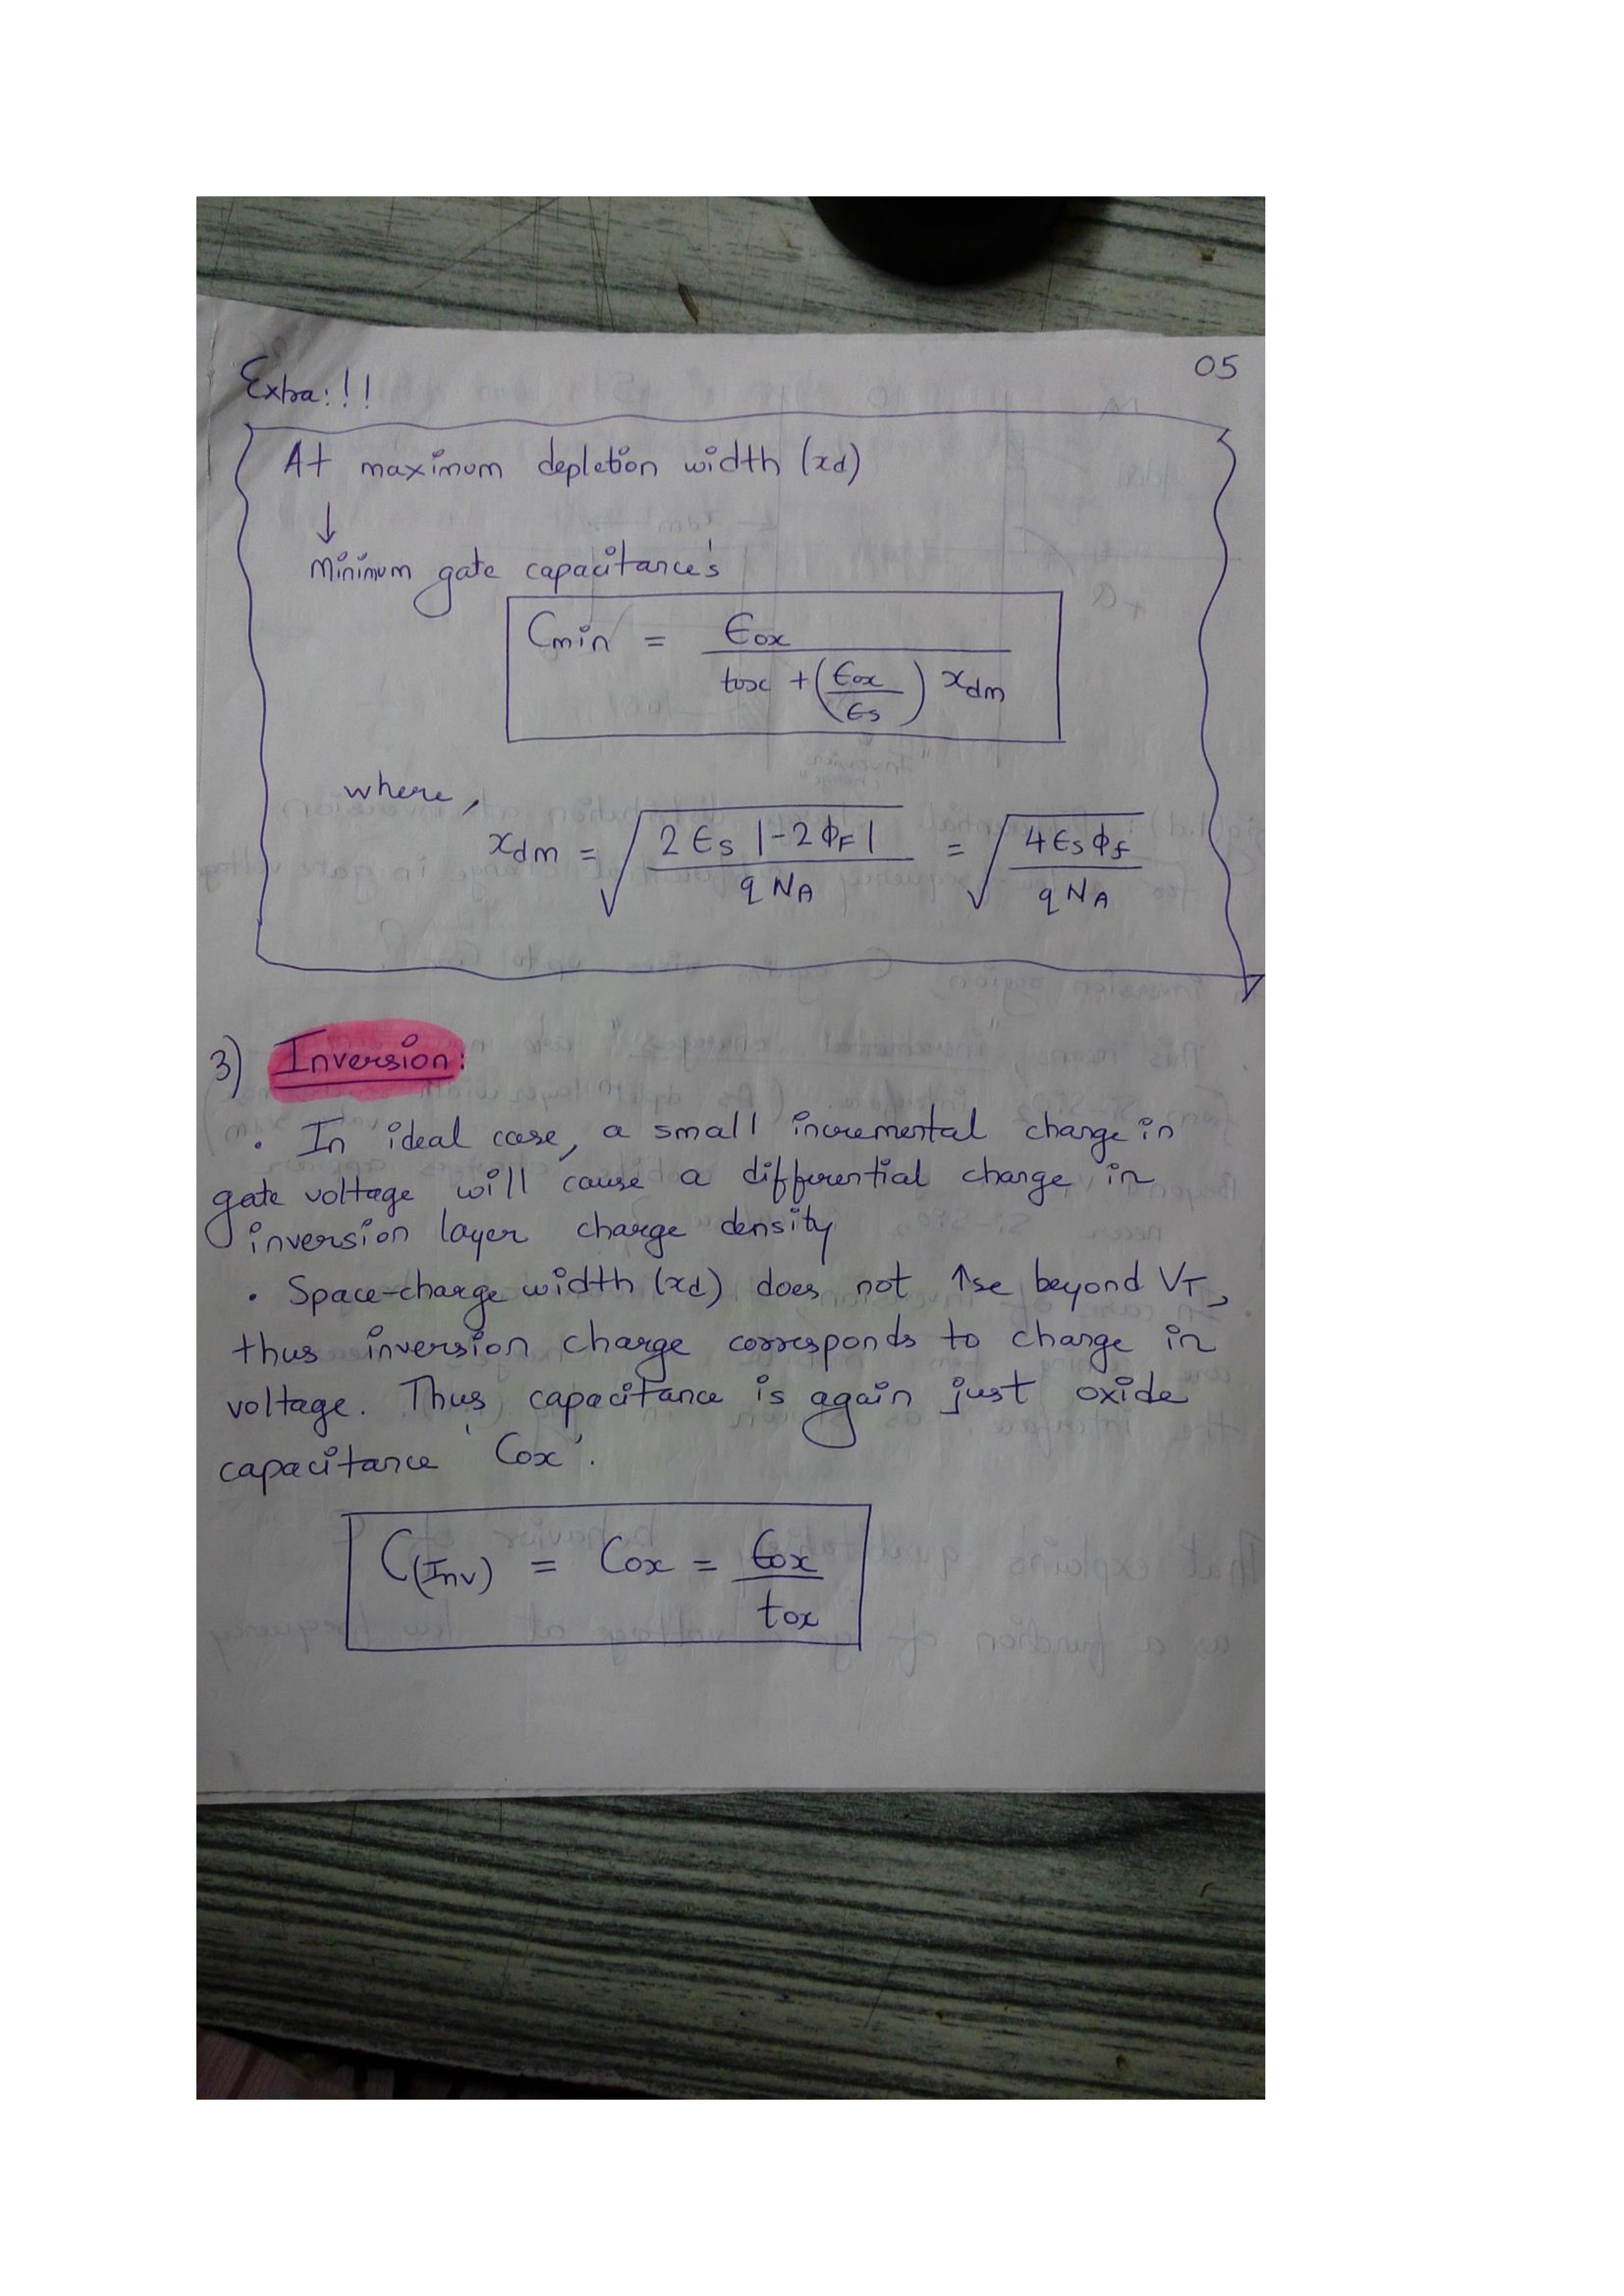 05
Extra:!!
At maximum depletion width (xd)
↓
Minimum gate capacitance's
Cmin = ϵox / (tox + (ϵox/ϵs) xdm)
where,
xdm = √(2 ϵs |-2ϕF| / q NA) = √(4 ϵs ϕf / q NA)
3) Inversion:
• In ideal case, a small incremental change in
gate voltage will cause a differential change in
inversion layer charge density
• Space-charge width (xd) does not ↑se beyond VT,
thus inversion charge corresponds to change in
voltage. Thus capacitance is again just oxide
capacitance 'Cox'.
C(Inv) = Cox = ϵox / tox